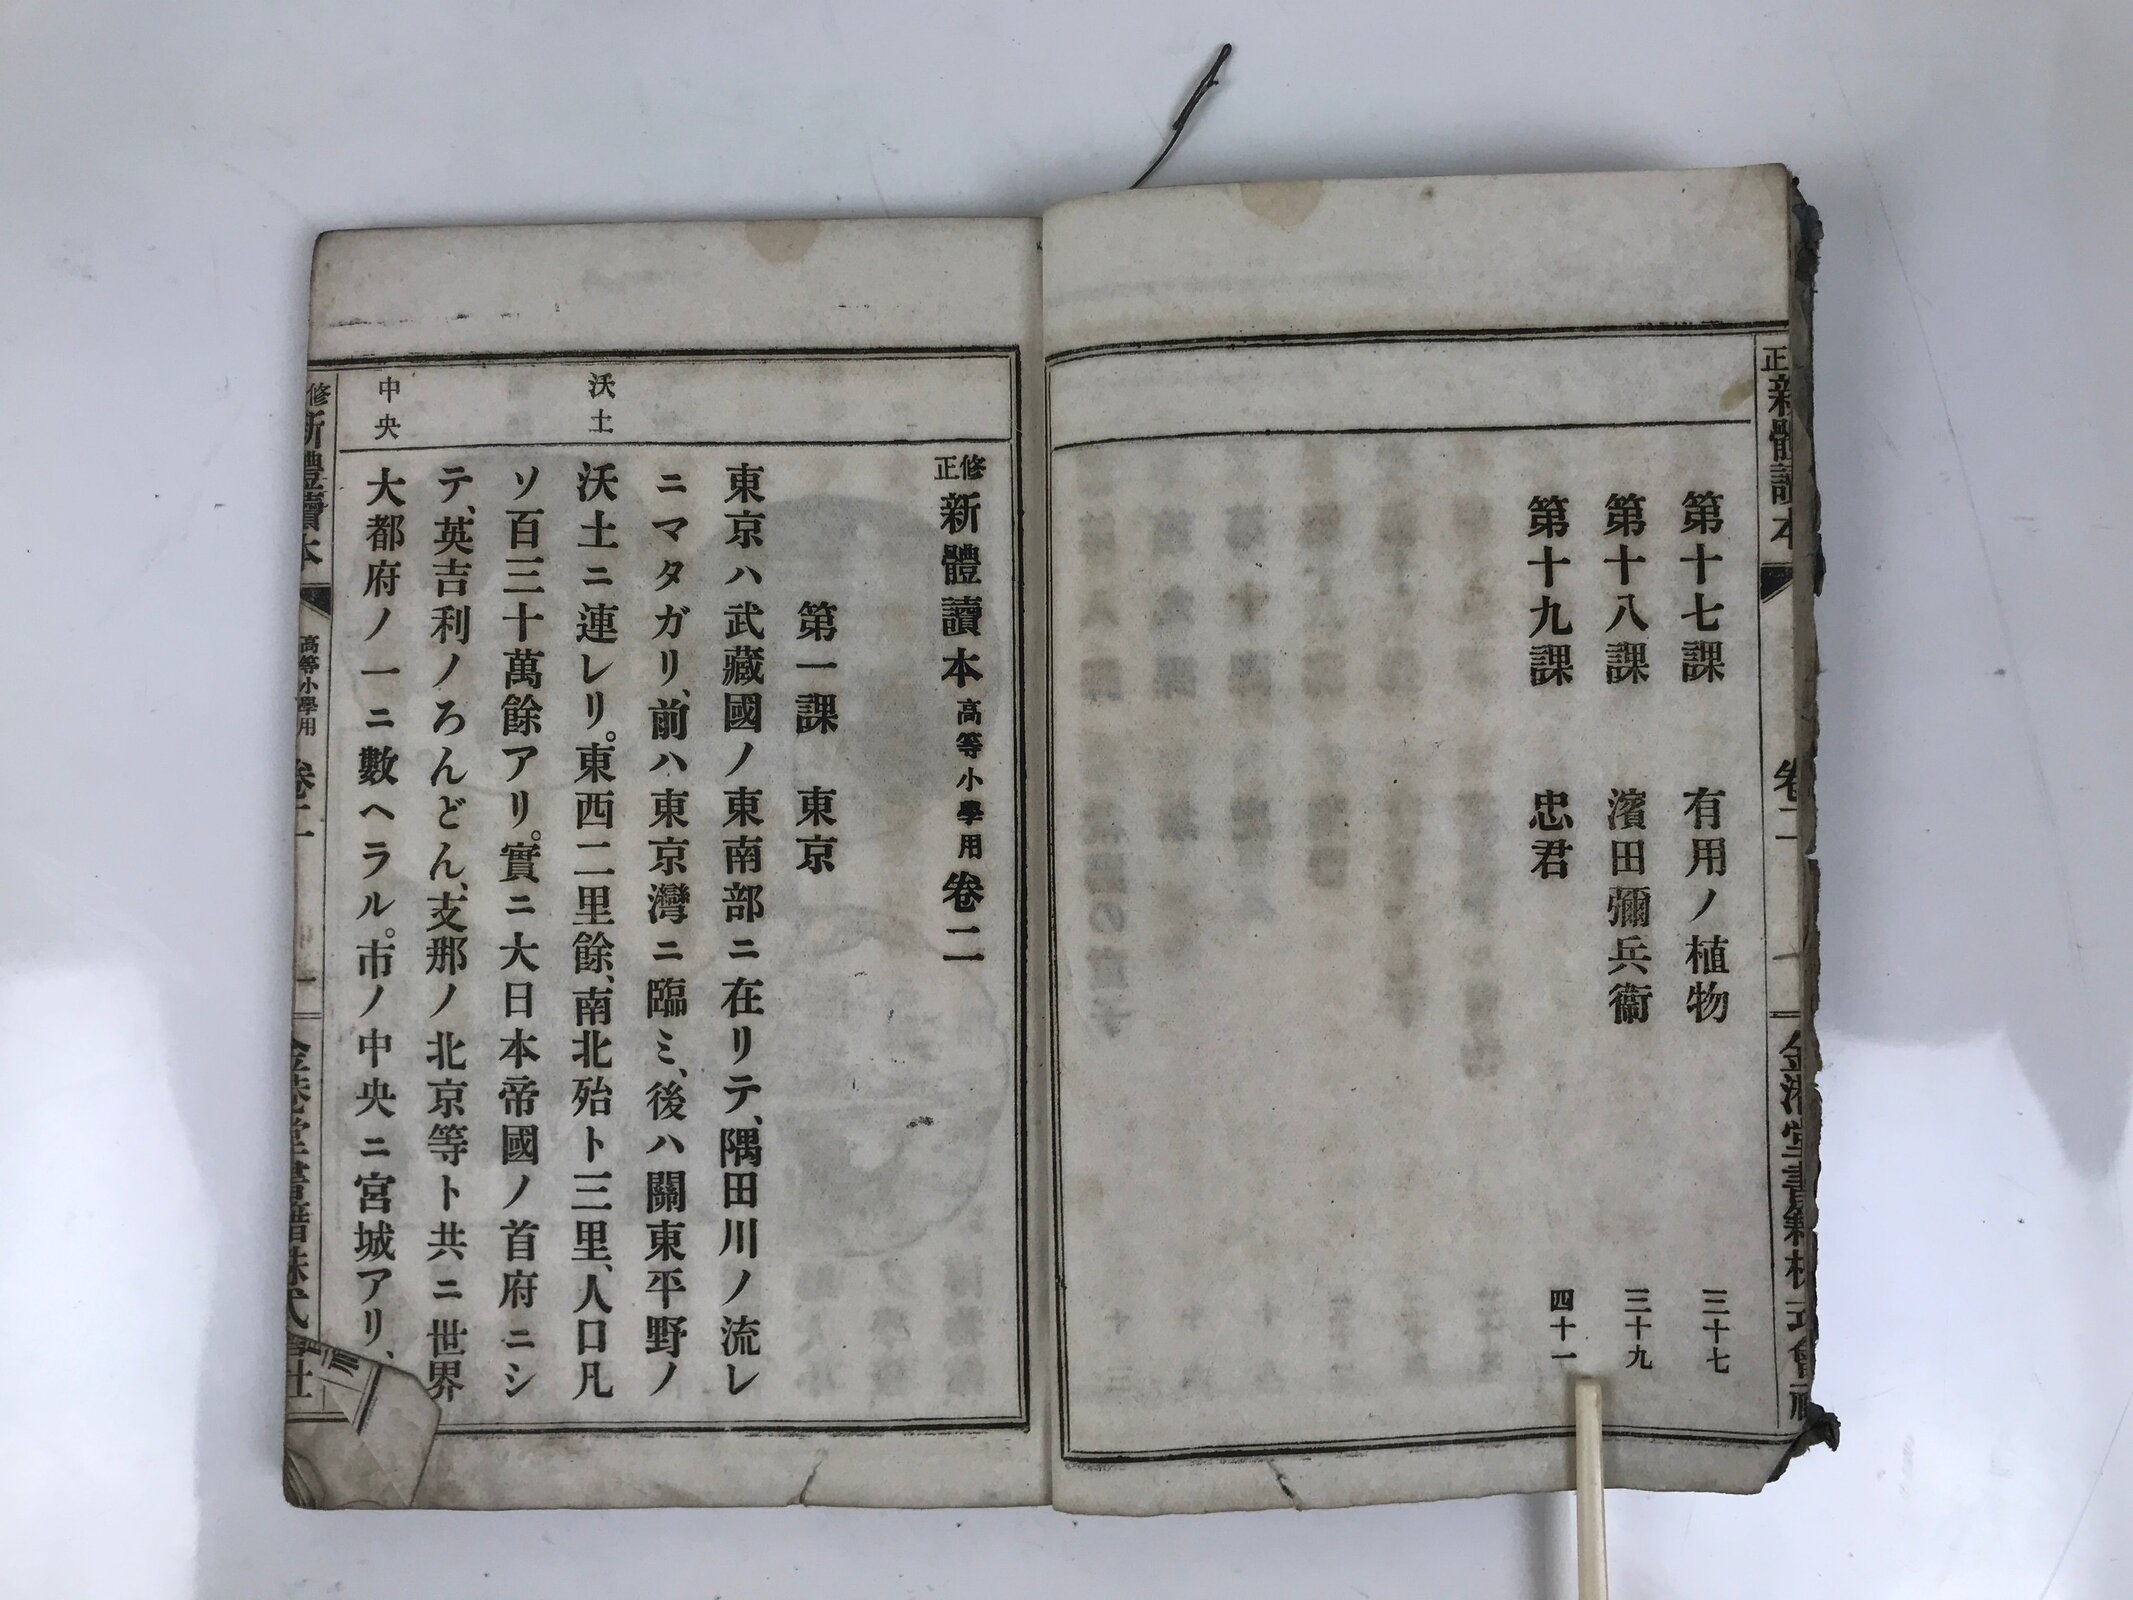 第十七課 有用ノ植物 三十七
第十八課 濱田彌兵衞 三十九
第十九課 忠君 四十一
修正新體讀本高等小學用卷二
第一課 東京
東京ハ武藏國ノ東南部ニ在リテ、隅田川ノ流レ
ニマタガリ、前ハ東京灣ニ臨ミ、後ハ關東平野ノ
沃土ニ連レリ。東西二里餘、南北殆ト三里、人口凡
ソ百三十萬餘アリ。實ニ大日本帝國ノ首府ニシ
テ、英吉利ノろんどん、支那ノ北京等ト共ニ世界
大都府ノ一ニ數ヘラル。市ノ中央ニ宮城アリ、
沃土
中央
修 新體讀本 高等小學用 卷二 一
正 新體讀本 卷二